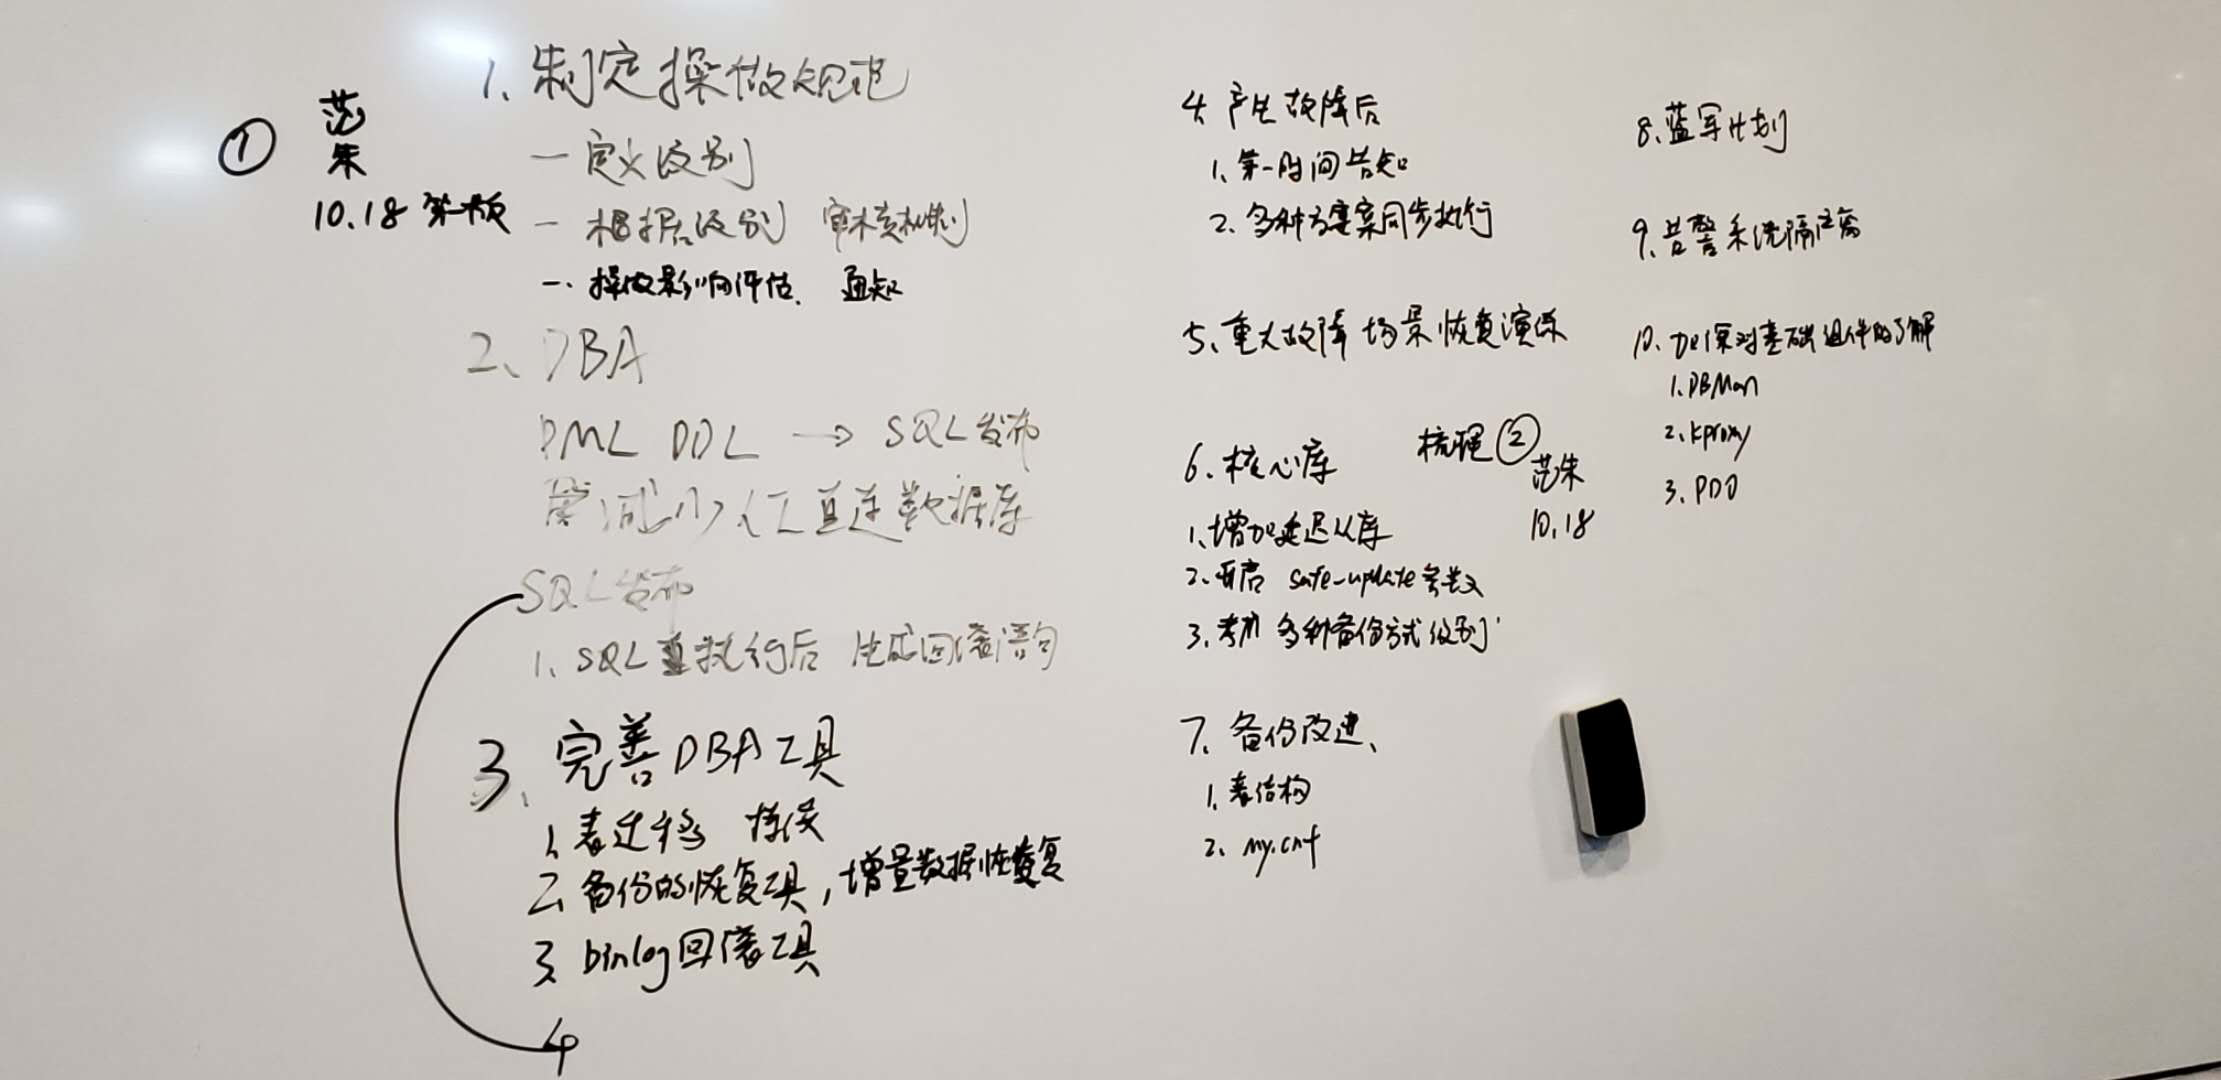 ① 范
朱
10.18 第一版
1、制定操做规范
一 定义级别
一 根据级别 审核机制
一、操做影响评估、通知
2、DBA
DML DDL → SQL发布
减少人工直连数据库
SQL发布
1、SQL 执行后 生成回滚语句
3、完善DBA工具
1、表迁移
2、备份的恢复工具，增量数据恢复
3、binlog回滚工具
4
4、产生故障后
1、第一时间告知
2、多种方案同步执行
5、重大故障 场景恢复演练
6、核心库 梳理②
范朱
10.18
1、增加延迟从库
2、开启 safe-update参数
3、考虑 多种备份方式 级别
7、备份改进、
1、表结构
2、my.cnf
8、蓝军计划
9、告警系统隔离
10、加深对基础组件的了解
1、DBMan
2、kproxy
3、PDO